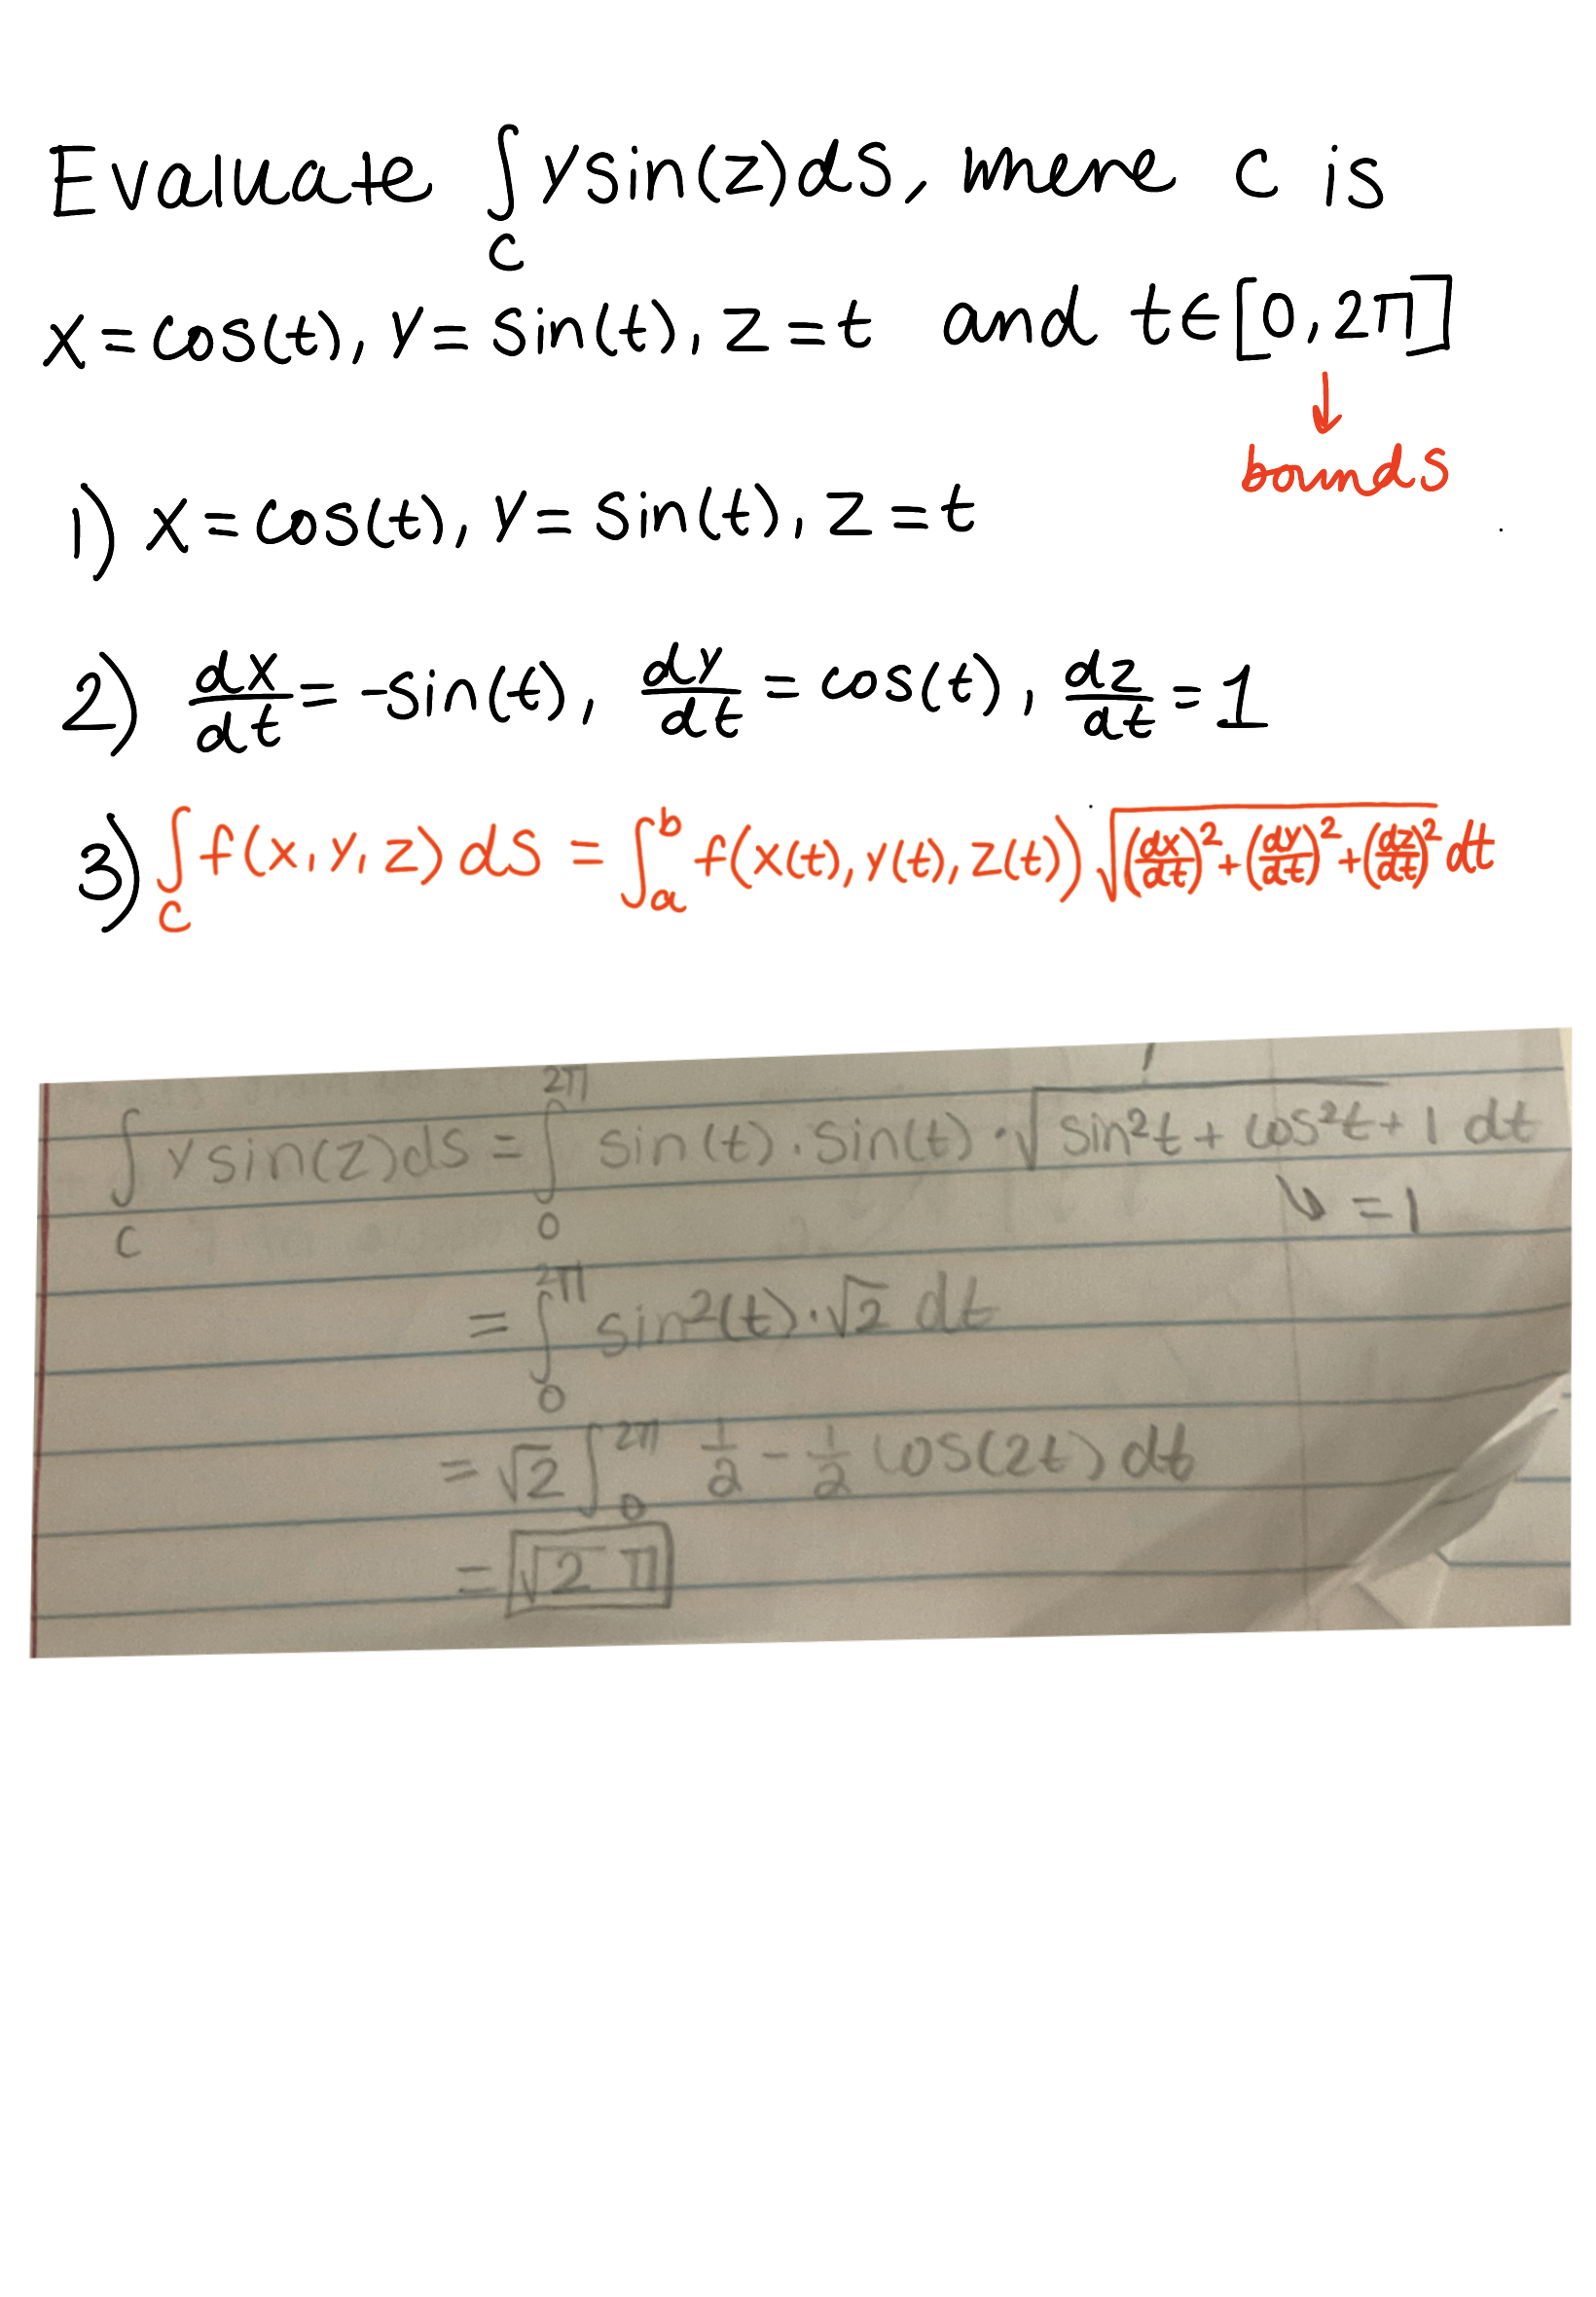 Evaluate ∫_C y sin(z) ds, where c is
x = cos(t), y = sin(t), z = t and t∈[0, 2π]
↓
bounds
1) x = cos(t), y = sin(t), z = t
2) dx/dt = -sin(t), dy/dt = cos(t), dz/dt = 1
3) ∫_C f(x, y, z) ds = ∫_a^b f(x(t), y(t), z(t)) √((dx/dt)² + (dy/dt)² + (dz/dt)²) dt
∫_C y sin(z) ds = ∫_0^2π sin(t) · sin(t) · √(sin²t + cos²t + 1) dt
↓ = 1
= ∫_0^2π sin²(t) · √2 dt
= √2 ∫_0^2π 1/2 - 1/2 cos(2t) dt
= √2 π